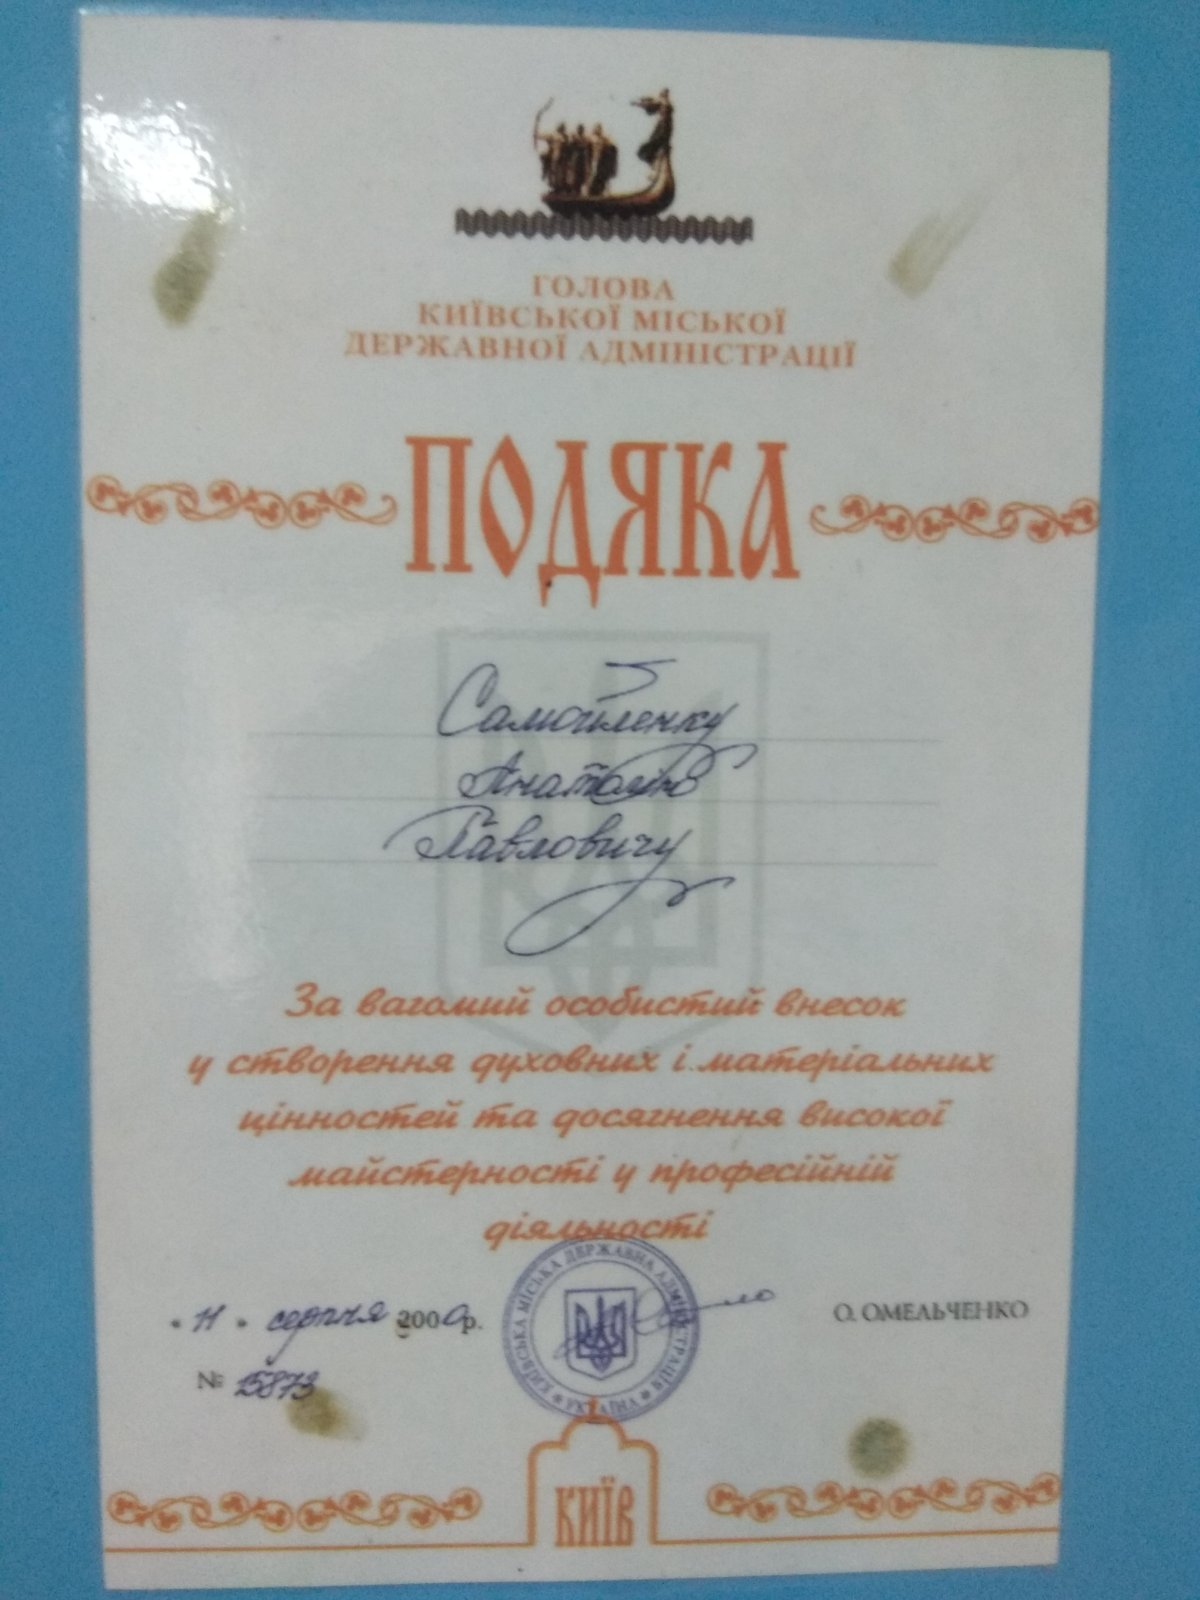 ГОЛОВА
КИЇВСЬКОЇ МІСЬКОЇ
ДЕРЖАВНОЇ АДМІНІСТРАЦІЇ
ПОДЯКА
Самойленку
Анатолію
Павловичу
За вагомий особистий внесок
у створення духовних і матеріальних
цінностей та досягнення високої
майстерності у професійній
діяльності
КИЇВСЬКА МІСЬКА ДЕРЖАВНА АДМІНІСТРАЦІЯ * УКРАЇНА *
" 11 " серпня 2000р.
О. ОМЕЛЬЧЕНКО
№ 15873
КИЇВ